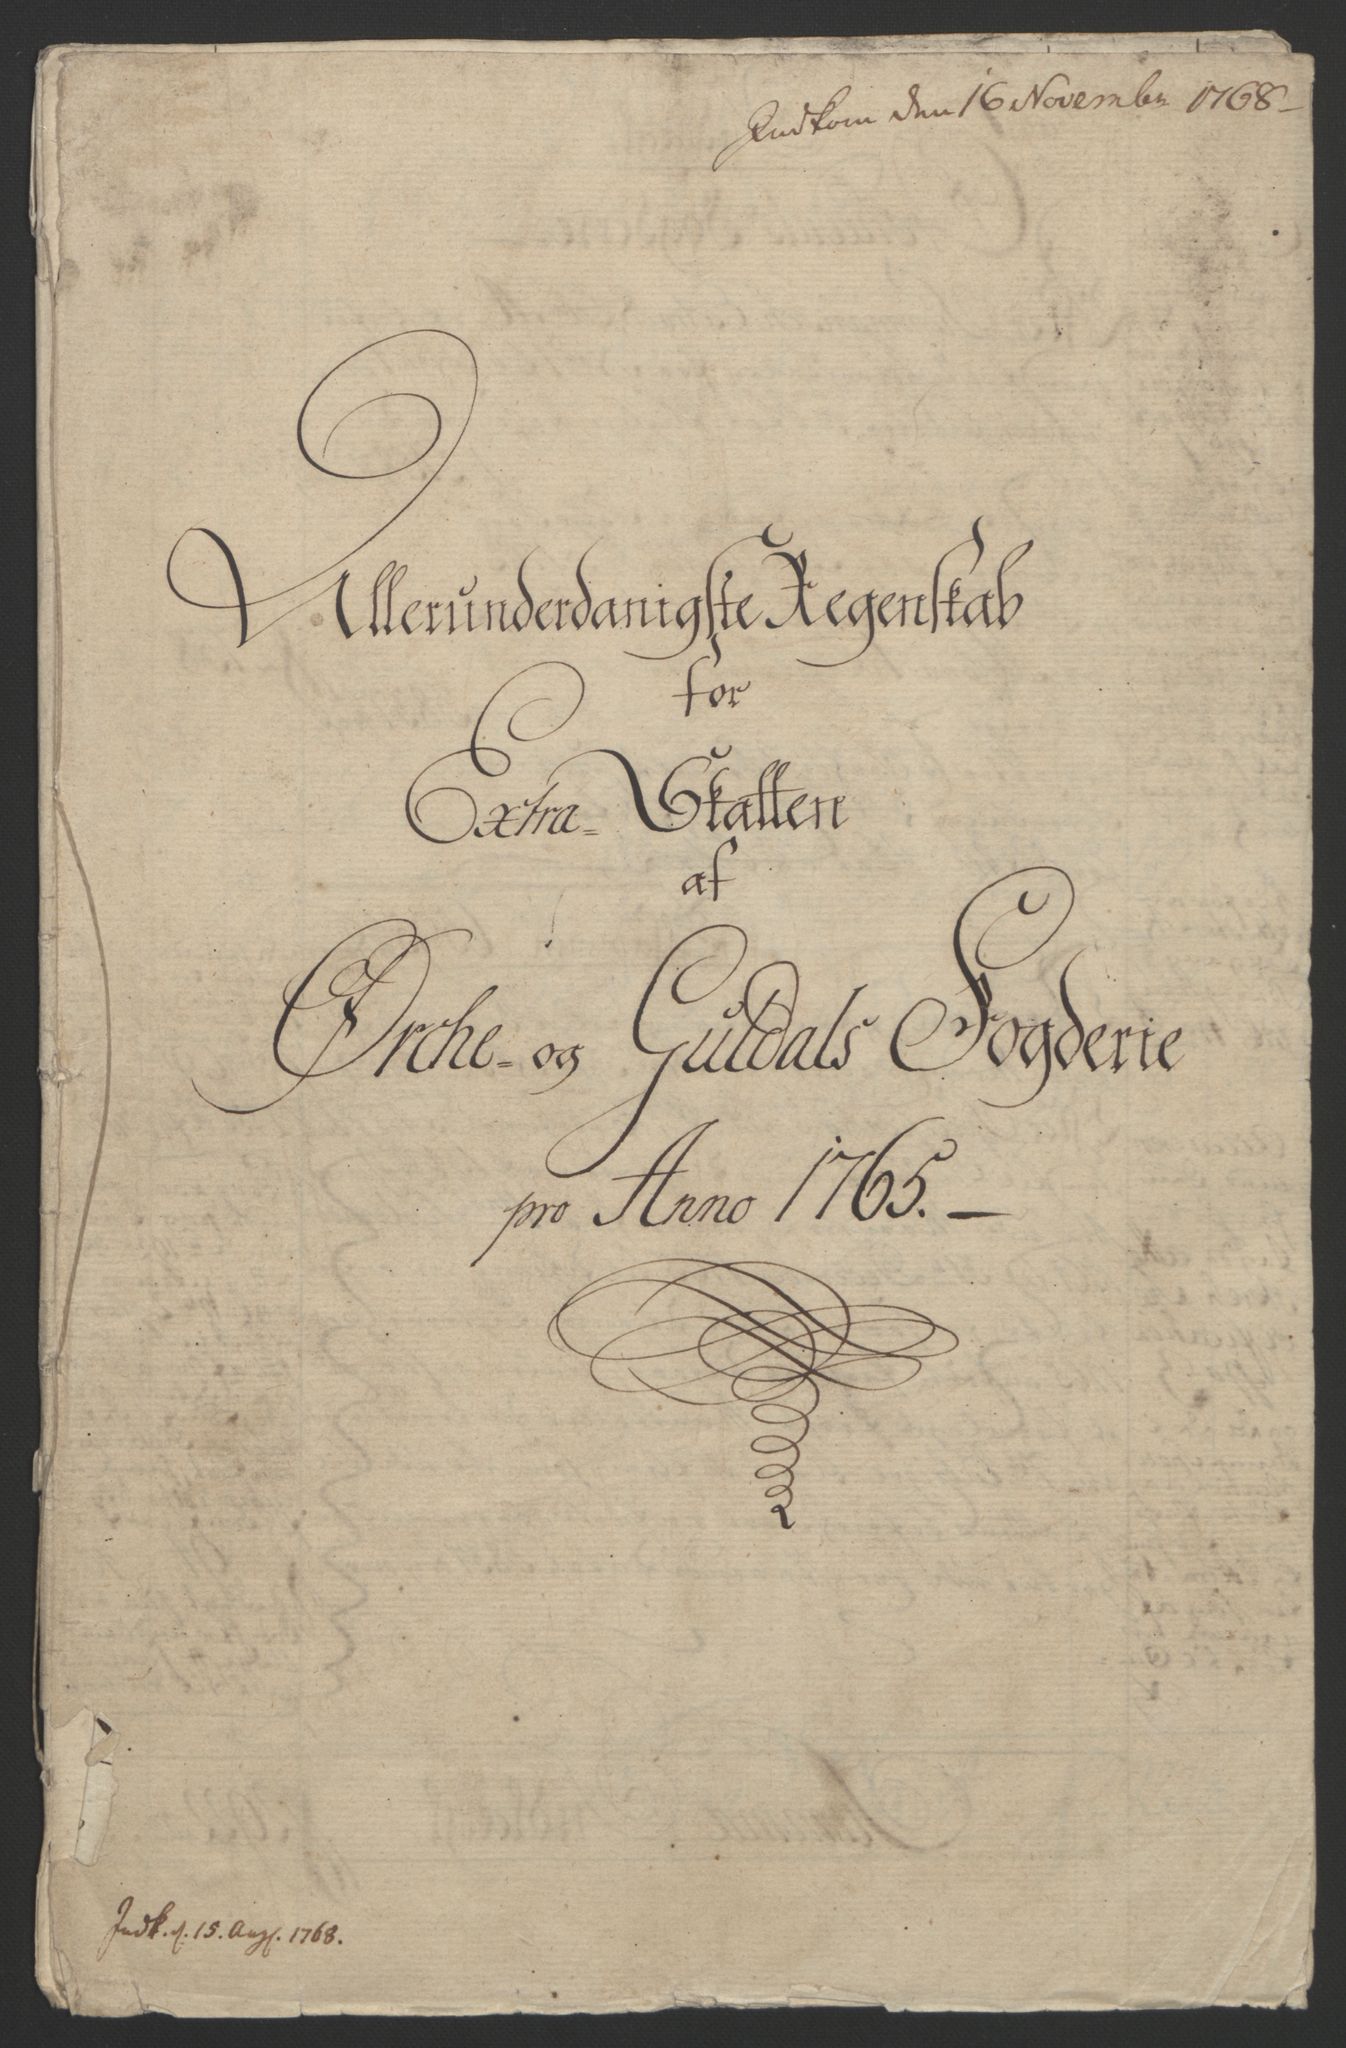 Indkom den 16 November 1768
Allerunderdanigste Regenskab
for
Extra-Skatten
af
Ørche- og Guldals Fogderie
pro Anno 1765.
Indk. d. 15. Aug. 1768.